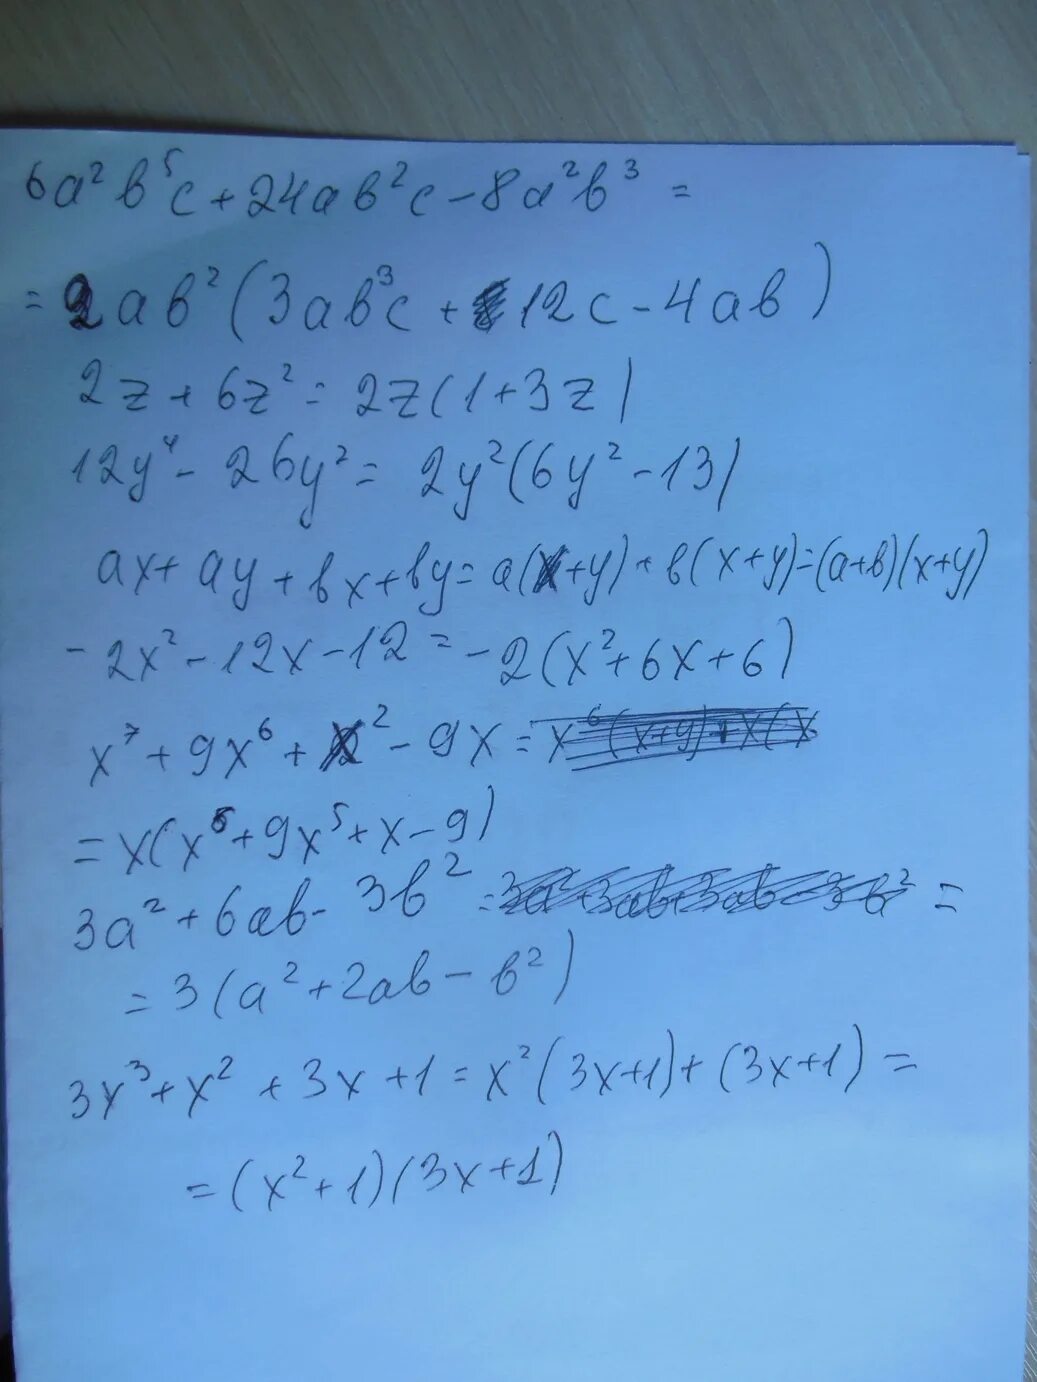 6a²b⁵c+24ab²c-8a²b³ =
= 2ab²(3ab³c + 12c-4ab)
2z+6z² = 2z(1+3z)
12y⁴ - 26y² = 2y²(6y²-13)
ax+ay+bx+by = a(x+y)+b(x+y)=(a+b)(x+y)
-2x²-12x-12 = -2(x²+6x+6)
x⁷+9x⁶+x²-9x = x⁶(x+9)+x(x
= x(x⁶+9x⁵+x-9)
3a²+6ab-3b² = 3a²+3ab+3ab-3b² =
= 3(a²+2ab-b²)
3x³+x²+3x+1=x²(3x+1)+(3x+1)=
= (x²+1)(3x+1)